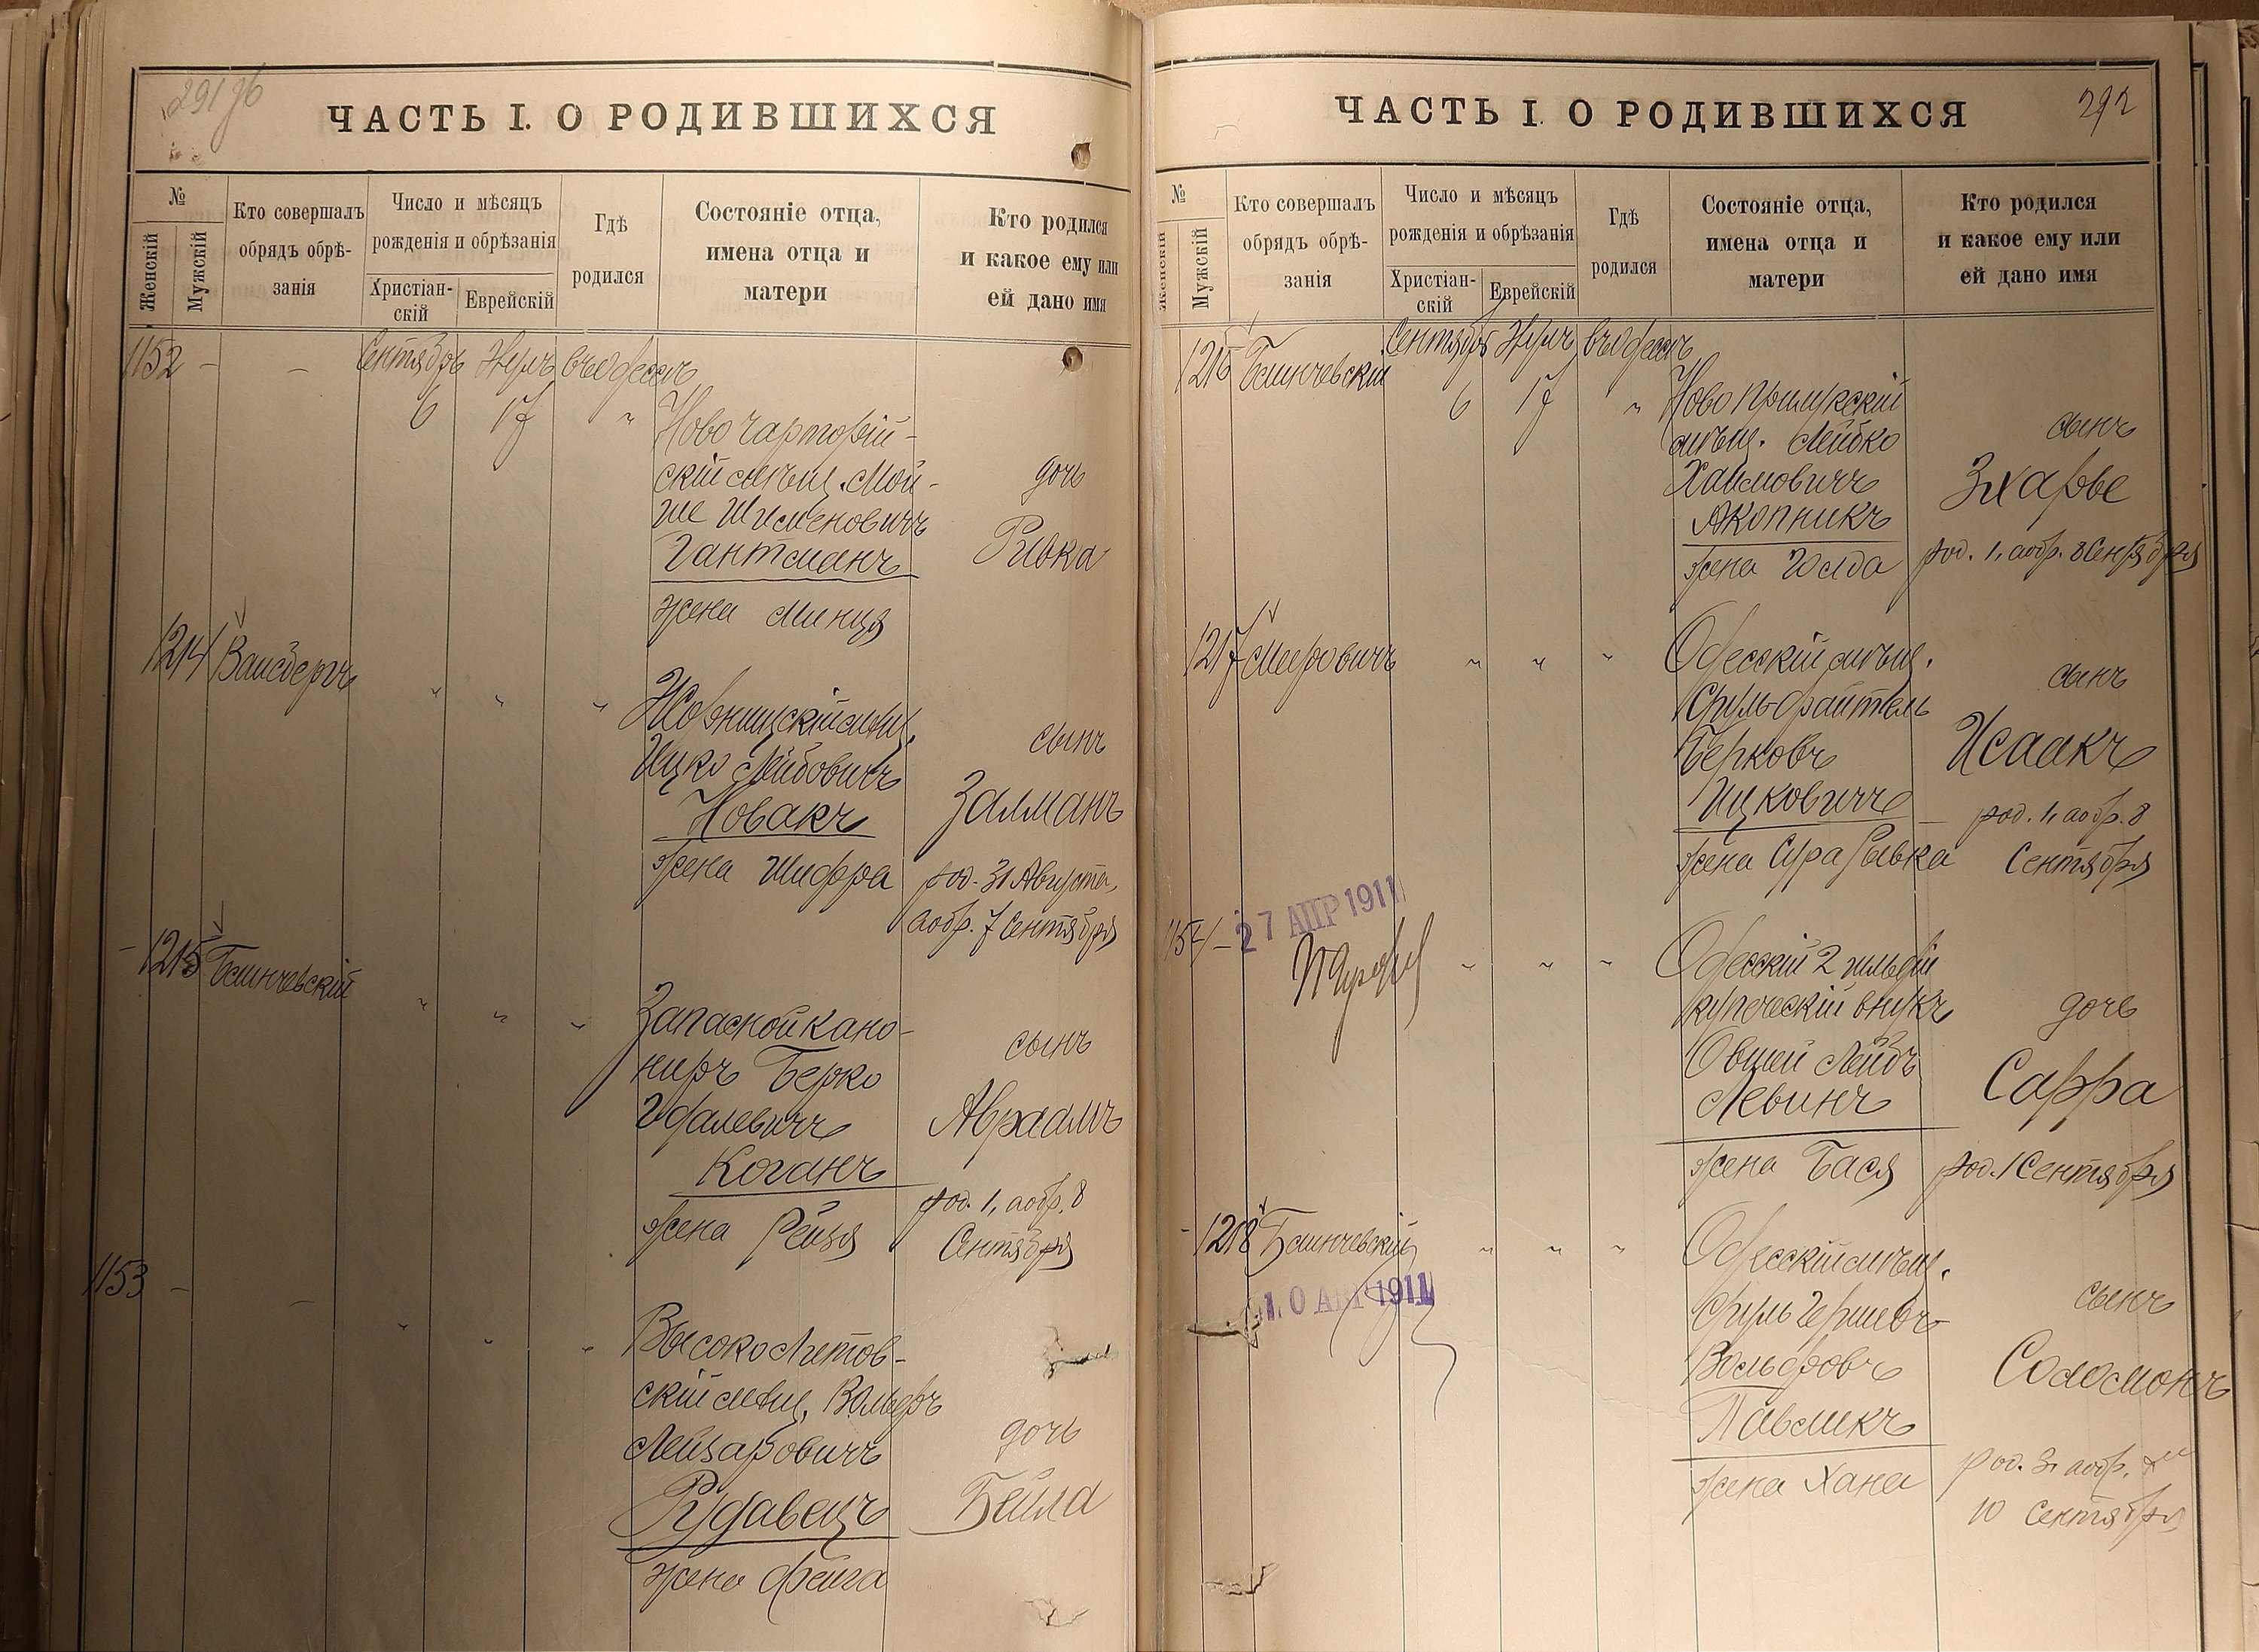 291 об
ЧАСТЬ I. О РОДИВШИХСЯ
№
Женскій
Мужскій
Кто совершалъ
обрядъ обрѣ-
занія
Число и мѣсяцъ
рожденія и обрѣзанія
Христіан-
скій
Еврейскій
Гдѣ
родился
Состояніе отца,
имена отца и
матери
Кто родился
и какое ему или
ей дано имя
1152 - - Сентябрь Элулъ въ Одессѣ
6 17 "
Ново Чарторій-
скій мѣщ. Мой-
ше Шименовичъ
Гантманъ
жена Минця
дочь
Ривка
1214 Вайсбергъ " " "
мѣщ.
Ицко Лейбовичъ
Новакъ
жена Шифра
сынъ
Залманъ
род. 31 Августа,
а обр. 7 Сентября
- 1215 " " "
Запасной кано-
ниръ Берко
Коганъ
жена Рейзя
сынъ
Авраамъ
род. 1, а обр. 8
Сентября
1153 - - " " "
Высоко Литов-
скій мѣщ. Вольфъ
Лейзаровичъ
Рудавецъ
жена Фейга
дочь
Бейла
292
ЧАСТЬ I. О РОДИВШИХСЯ
№
Женскій
Мужскій
Кто совершалъ
обрядъ обрѣ-
занія
Число и мѣсяцъ
рожденія и обрѣзанія
Христіан-
скій
Еврейскій
Гдѣ
родился
Состояніе отца,
имена отца и
матери
Кто родился
и какое ему или
ей дано имя
1216 Сентябрь Элулъ въ Одессѣ
6 17 "
Ново Прилукскій
мѣщ. Лейбко
Хаимовичъ
Якопникъ
жена Голда
сынъ
Зхарье
род. 1, а обр. 8 Сентября
1217 Мееровичъ " " "
Одесскій мѣщ.
Сруль Файтель
Берковъ
Ицковичъ
жена Сура Рывка
сынъ
Исаакъ
род. 1, а обр. 8
Сентября
27 АПР 1911
1154 - " " "
Одесскій 2 гильдіи
купеческій внукъ
Овшей Лейбъ
Левинъ
жена Бася
дочь
Сарра
род. 1 Сентября
- 1218 " " "
10 АПР 1911
Одесскій мѣщ.
Сруль Гершевъ
Вольфовъ
Павликъ
жена Хана
сынъ
Соломонъ
род. 3, а обр.
10 Сентября